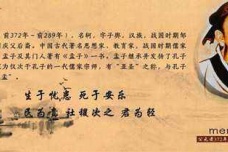 前372年－前289年），名轲，字子舆，汉族，战国时期邹
父后裔。中国古代著名思想家、教育家，战国时期儒家
及其门人著有《孟子》一书。孟子继承并发扬了孔子
为仅次于孔子的一代儒家宗师，有“亚圣”之称，与孔子
生于忧患 死于安乐
民为贵 社稷次之 君为轻